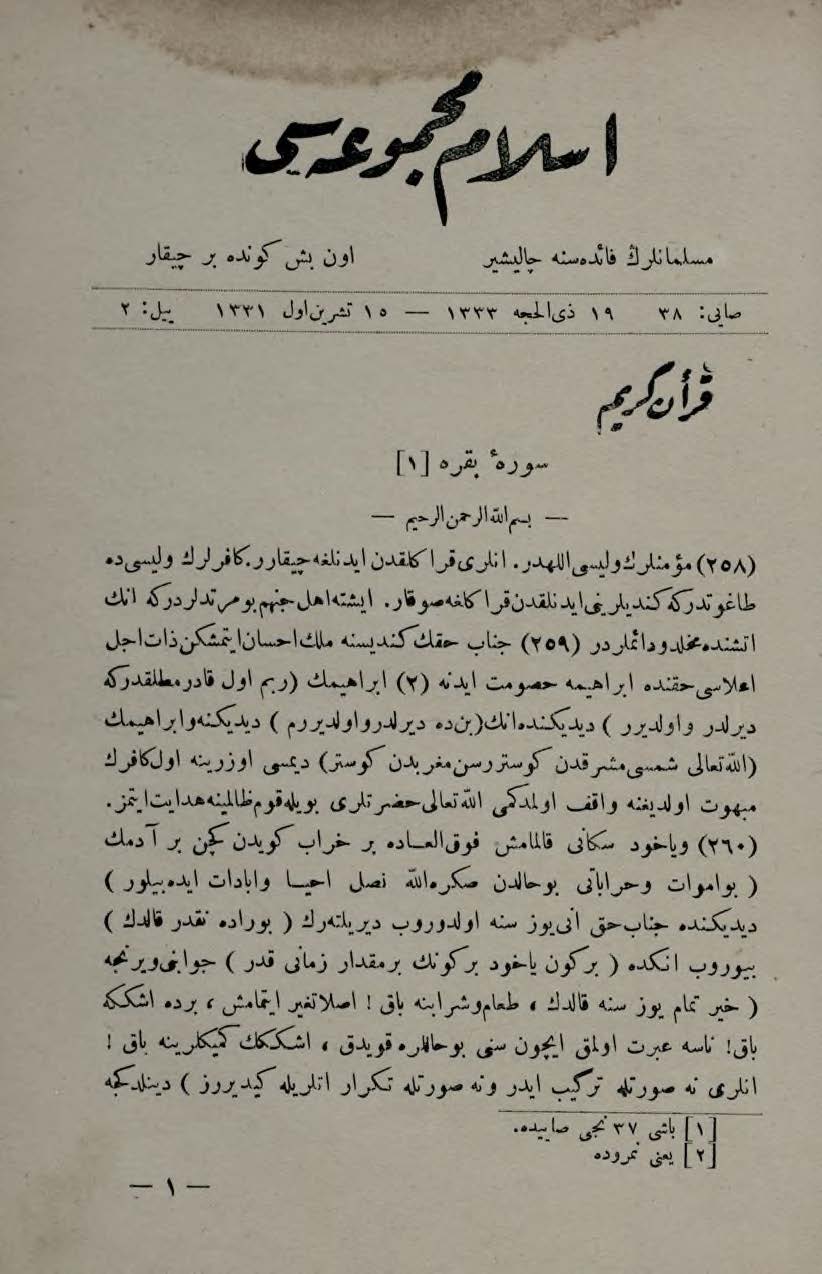 اسلام مجموعه‌سی
مسلمانلرڭ فائده‌سنه چالیشیر اون بش كونده بر چیقار
صایی: ٣٨ ١٩ ذی‌الحجه ١٣٣٣ — ١٥ تشرین‌اول ١٣٣١ ییل: ٢
قرأن كریم
سورهٔ بقره [١]
— بسم‌الله‌الرحمن‌الرحیم —
(٢٥٨) مؤمنلرك ولیسی اللهدر. انلری قراكلقدن ایدنلغه چیقارر. كافرلرك ولیسی ده
طاغوتدركه كندیلرینی ایدنلقدن قراكلغه صوقار. ایشته اهل جنهم بو مرتدلردركه انك
اتشنده مخلد و دائملردر (٢٥٩) جناب حقك كندیسنه ملك احسان ایتمشكن ذات اجل
اعلاسی حقنده ابراهیمه حصومت ایدنه (٢) ابراهیمك (ربم اول قادر مطلقدركه
دیرلدر و اولدیرر ) دیدیكنده انك (بن ده دیرلدر و اولدیررم ) دیدیكنه و ابراهیمك
(الله تعالی شمسی مشرقدن كوستررسن مغربدن كوستر) دیمسی اوزرینه اول كافرك
مبهوت اولدیغنه واقف اولمدكمی الله تعالی حضرتلری بویله قوم ظالمینه هدایت ایتمز.
(٢٦٠) ویاخود سكانی قالمامش فوق‌العـاده بر خراب كویدن كچن بر آدمك
( بو اموات وحراباتی بو حالدن صكره الله نصل احیـا وابادات ایده‌بیلور )
دیدیكنده جناب حق انی یوز سنه اولدوروب دیریلته‌رك ( بوراده نقدر قالدك )
بیوروب انكده ( بركون یاخود بركونك برمقدار زمانی قدر ) جوابنی ویرنجه
( خیر تمام یوز سنه قالدك ، طعام وشرابنه باق ! اصلا تغیر ایتمامش ، برده اشككه
باق! ناسه عبرت اولمق ایچون سنی بو حاللره قویدق ، اشككك كمیكلرینه باق !
انلری نه صورتله تركیب ایدر ونه صورتله تكرار اتلریله كیدیررز ) دینلدكجه
[١] باشی ٣٧ نجی صاییده.
[٢] یعنی نمروده
— ١ —